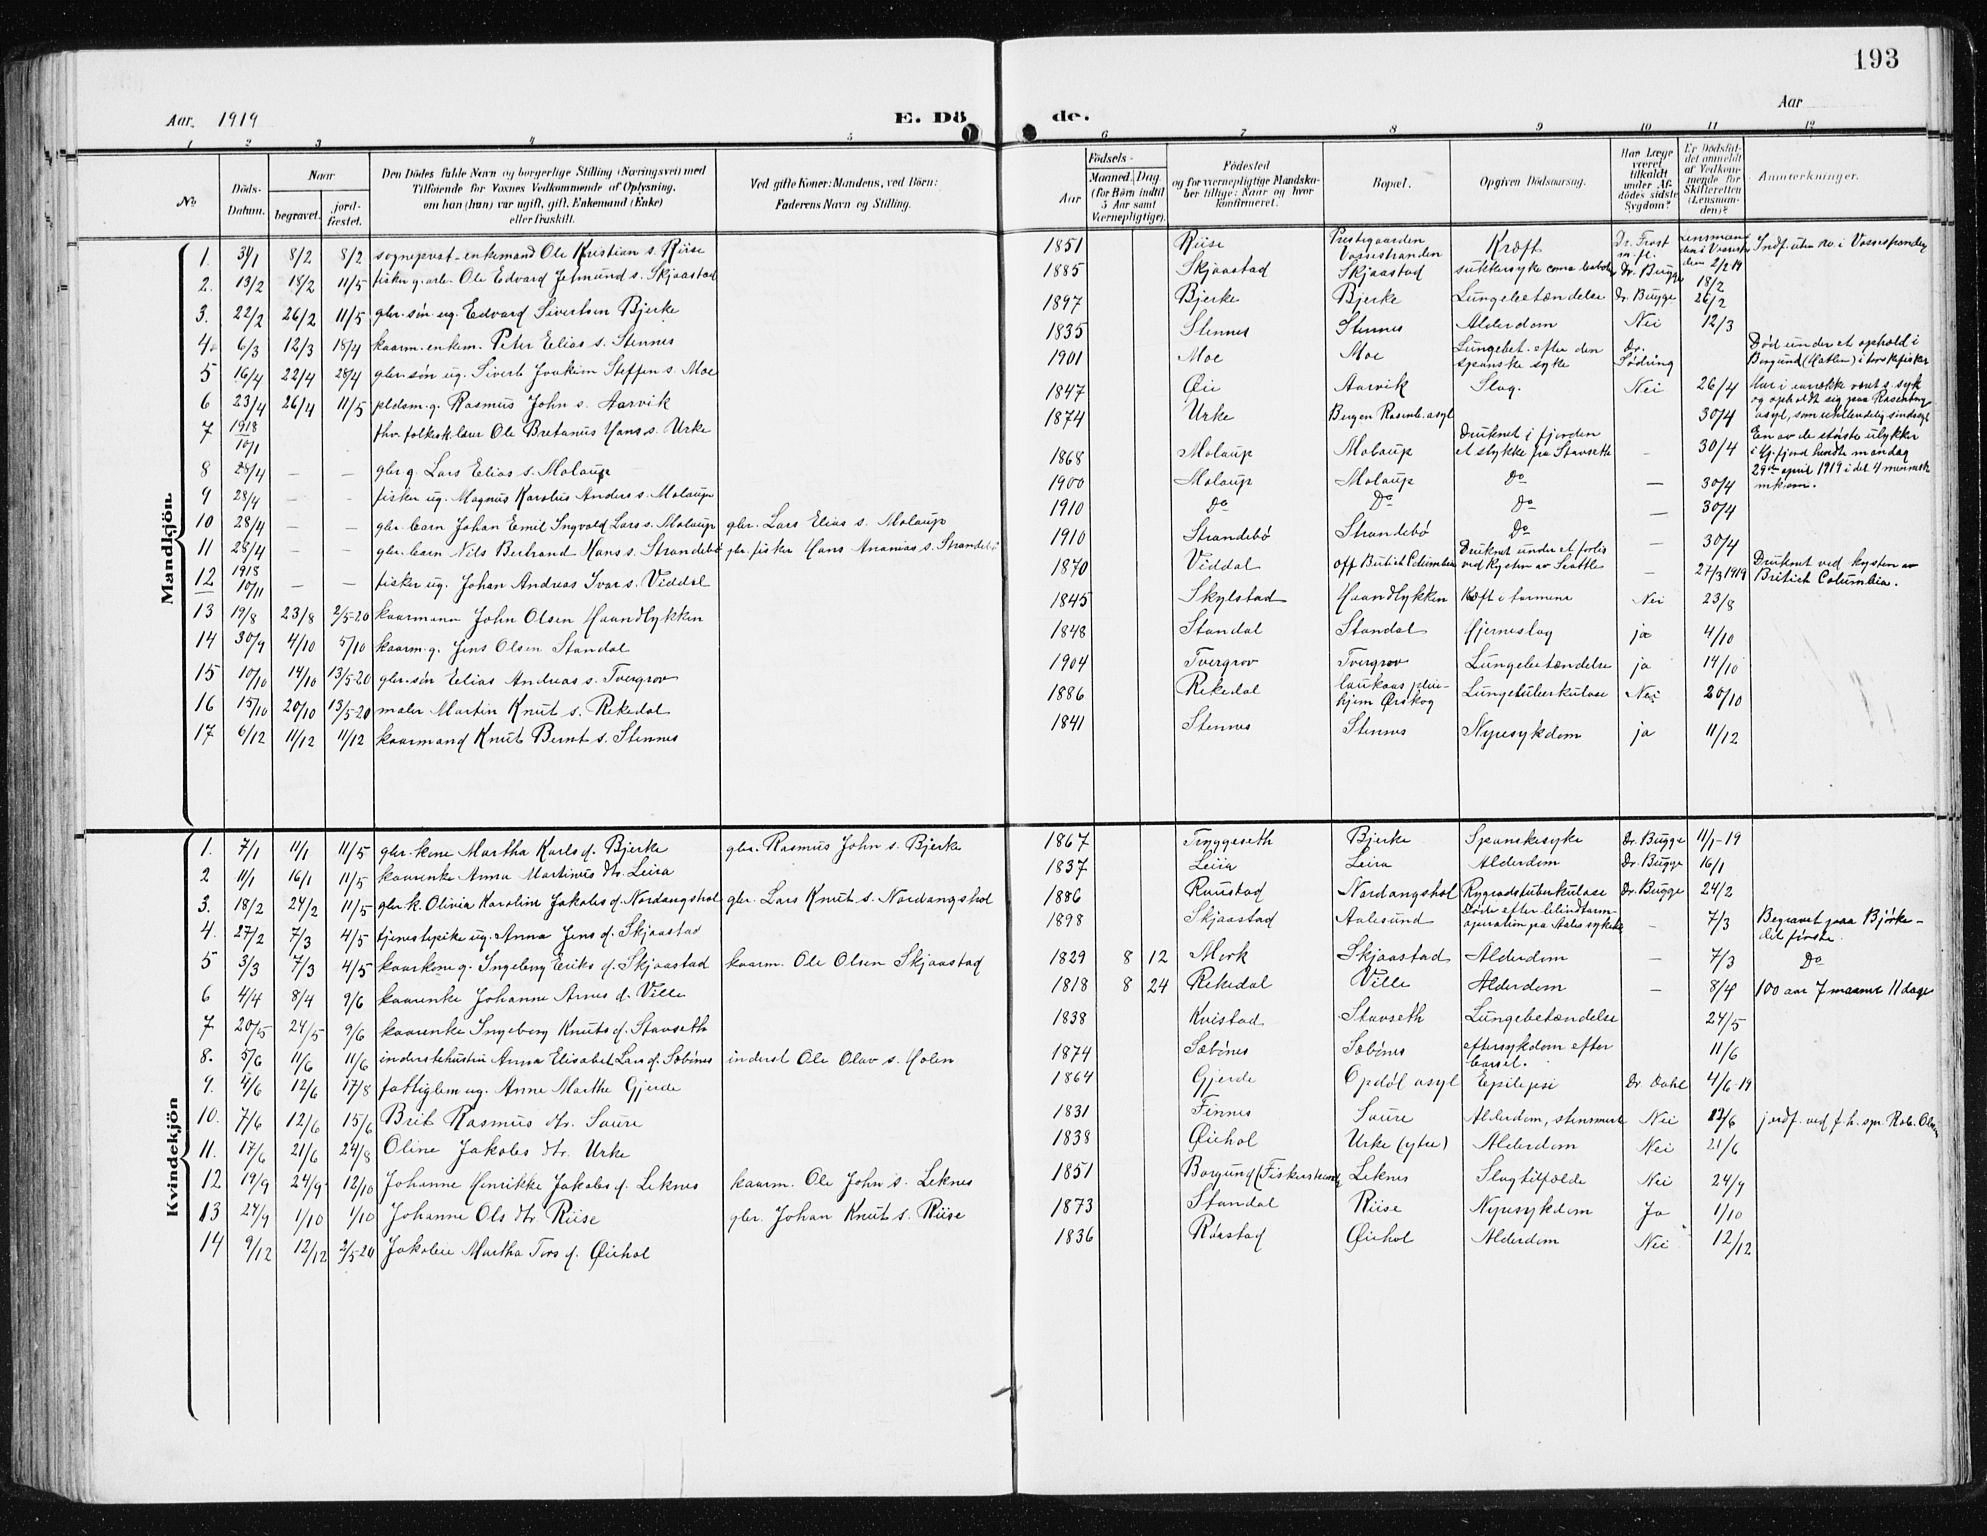 193
Aar 1919
E. Dö
de.
Aar
1 2 3 4 5 6 7 8 9 10 11 12
No
Döds-Datum.
Naar
begravet.
jord-fæstet.
Den Dödes fulde Navn og borgerlige Stilling (Næringsvei) med
Tilföiende for Voxnes Vedkommende af Oplysning,
om han (hun) var ugift, gift, Enkemand (Enke)
eller fraskilt.
Ved gifte Koner: Mandens, ved Börn:
Faderens Navn og Stilling.
Födsels-
Aar
Maaned. Dag
(for Börn indtil
5 Aar samt
Værnepligtige).
Födested
og for værnepligtige Mandska-
ber tillige: Naar og hvor
konfirmeret.
Bopæl.
Opgiven Dödsaarsag.
Har Læge
været
tilkaldt
under Af-
dödes sidste
Sygdom?
Er Dödsfal-
det anmeldt
af Vedkom-
mende for
Skifteretten
(Lensman-
den)?
Anmærkninger.
Mandkjön.
1. 31/1 8/2 8/2 sogneprest enkemand Ole Kristian s. Riise 1851 Riise Prestegaarden Vossestranden Kræft Dr. Frost m. fl. Lensmanden i Vossestr. den 2/2 19 Indf. uten no. i Vossestranden
2. 13/2 18/2 11/5 fisker g. arb. Ole Edvard Jetmund s. Skjaastad 1885 Skjaastad Skjaastad sukkersyke coma Dr. Bugge 18/2
3. 22/2 26/2 11/5 gbr. søn ug. Edvard Sivertsen Bjerke 1897 Bjerke Bjerke Lungebetændelse Dr. Bugge 26/2
4. 6/3 12/3 18/4 kaarm. enkem. Peter Elias s. Stennes 1835 Stennes Stennes Alderdom Nei 12/3
5 16/4 22/4 28/4 gbr. søn ug. Sivert Joakim Steffen s. Moe 1901 Moe Moe Lungebet. efter den spanske syke Dr. Sødring Død under et ophold i Borgund (Hatlen) i torskfisket
6 23/4 26/4 11/5 pldsm. g. Rasmus John s. Aarvik 1847 Øie Aarvik Slag. Nei 26/4
7 1918 10/1 fhv. folkesk. lærer Ole Bretanus Hans s. Urke 1874 Urke Bergen Rosenb. asyl 30/4 Har i en række været s. syk og opholdt sig paa Rosenberg asyl, som uhelbredelig sindssyk
8 28/4 — — gbr. g. Lars Elias s. Molaup 1868 Molaup Molaup Druknet i fjorden et stykke fra Stavseth — 30/4 En av de største ulykker i Hj. fjord hendte mandag 28de april 1919 i det 4 mennesk. omkom.
9 28/4 — — fisker ug. Magnus Karolus Anders s. Molaup 1900 Molaup Molaup Do — 30/4
10 28/4 — — gbr. barn Johan Emil Ingvald Lars s. Molaup gbr. Lars Elias s. Molaup 1910 Do Do Do — 30/4
11 28/4 — — gbr. barn Nils Bertrand Hans s. Strandebø gbr. fisker Hans Ananias s. Strandebø 1910 Strandebø Strandebø Do — 30/4
12 1918 10/11 — — fisker ug. Johan Andreas Ivar s. Viddal 1870 Viddal off British Columbia Druknet under et forlis ved Kysten av Seattle — 27/3 1919 Druknet ved kysten av British Columbia.
13 19/8 23/8 2/5-20 kaarmann John Olsen Haandlykken 1845 Skylstad Haandlykken Kræft i tarmene Nei 23/8
14 30/9 4/10 5/10 kaarm. g. Jens Olsen Standal 1848 Standal Standal Hjerneslag ja 4/10
15 10/10 14/10 13/5-20 gbr. søn Elias Andreas s. Tvergrov 1904 Tvergrov Tvergrov Lungebetændelse ja 14/10
16 15/10 20/10 13/5-20 maler Martin Knut s. Rekedal 1886 Rekedal pleiehjem Ørskog Lungetuberkulose Nei 20/10
17 6/12 11/12 11/12 kaarmand Knut Bernt s. Stennes 1841 Stennes Stennes Nyresykdom ja 11/12
Kvindekjön
1. 7/1 11/1 11/5 gbr. kone Martha Karls d. Bjerke gbr. Rasmus John s. Bjerke 1867 Tryggeseth Bjerke Spanskesyke Dr. Bugge 11/1-19
2 11/1 16/1 11/5 kaarenke Anna Martinus dtr. Leira 1837 Leira Leira Alderdom Dr. Bugge 16/1
3. 18/2 24/2 11/5 gbr. k. Olivia Karoline Jakobs d. Nordangshol gbr. Lars Knut s. Nordangshol 1886 Raustad Nordangshol Rygradstuberkulose Dr. Bugge 24/2
4. 27/2 7/3 4/5 tjenestepike ug. Anna Jens d. Skjaastad 1898 Skjaastad Aalesund Døde efter blindtarmoperation paa Aales sykeh. — 7/3 Begravet paa Bjørke — det første.
5 3/3 7/3 4/5 kaarkone g. Ingeborg Eriks d. Skjaastad kaarm. Ole Olsen Skjaastad 1829 8 12 Mork Skjaastad Alderdom — 7/3 Do
6 4/4 8/4 9/6 kaarenke Johanne Arnes d. Ville 1818 8 24 Rekedal Ville Alderdom — 8/4 100 aar 7 maaner 11 dage
7 20/5 24/5 9/6 kaarenke Ingeborg Knuts d. Stavseth 1838 Kvistad Stavseth Lungebetændelse 24/5
8. 5/6 11/6 11/6 inderstehustru Anna Elisabet Lars d. Sæbønes inderst Ole Olav s. Holen 1874 Sæbønes Sæbønes eftersykdom efter barsel. 11/6
9. 4/6 12/6 17/8 fattiglem ug. Anne Marthe Gjerde 1864 Gjerde Opdøl asyl Epilepsi Dr. Dahl 4/6-19
10. 7/6 12/6 15/6 Brit Rasmus dtr. Saure 1831 Finnes Saure Alderdom, stensmerte Nei 12/6 jordf. ved f. h. spr. Rob. Olsen
11. 17/6 21/6 24/8 Oline Jakobs dtr. Urke 1838 Øichol Urke (ytre) Alderdom Nei 21/6
12 19/9 24/9 12/10 Johanne Henrikke Jakobs d. Leknes kaarm. Ole John s. Leknes 1851 Borgund (Fiskerstrand) Leknes Slagtilfælde Nei 24/9
13 24/9 1/10 1/10 Johanne Ols dtr. Riise gbr. Johan Knut s. Riise 1873 Standal Riise Nyresykdom Ja 1/10
14 9/12 12/12 2/5-20 Jakobie Martha Tors d. Øichol 1836 Raastad Øichol Alderdom Nei 12/12